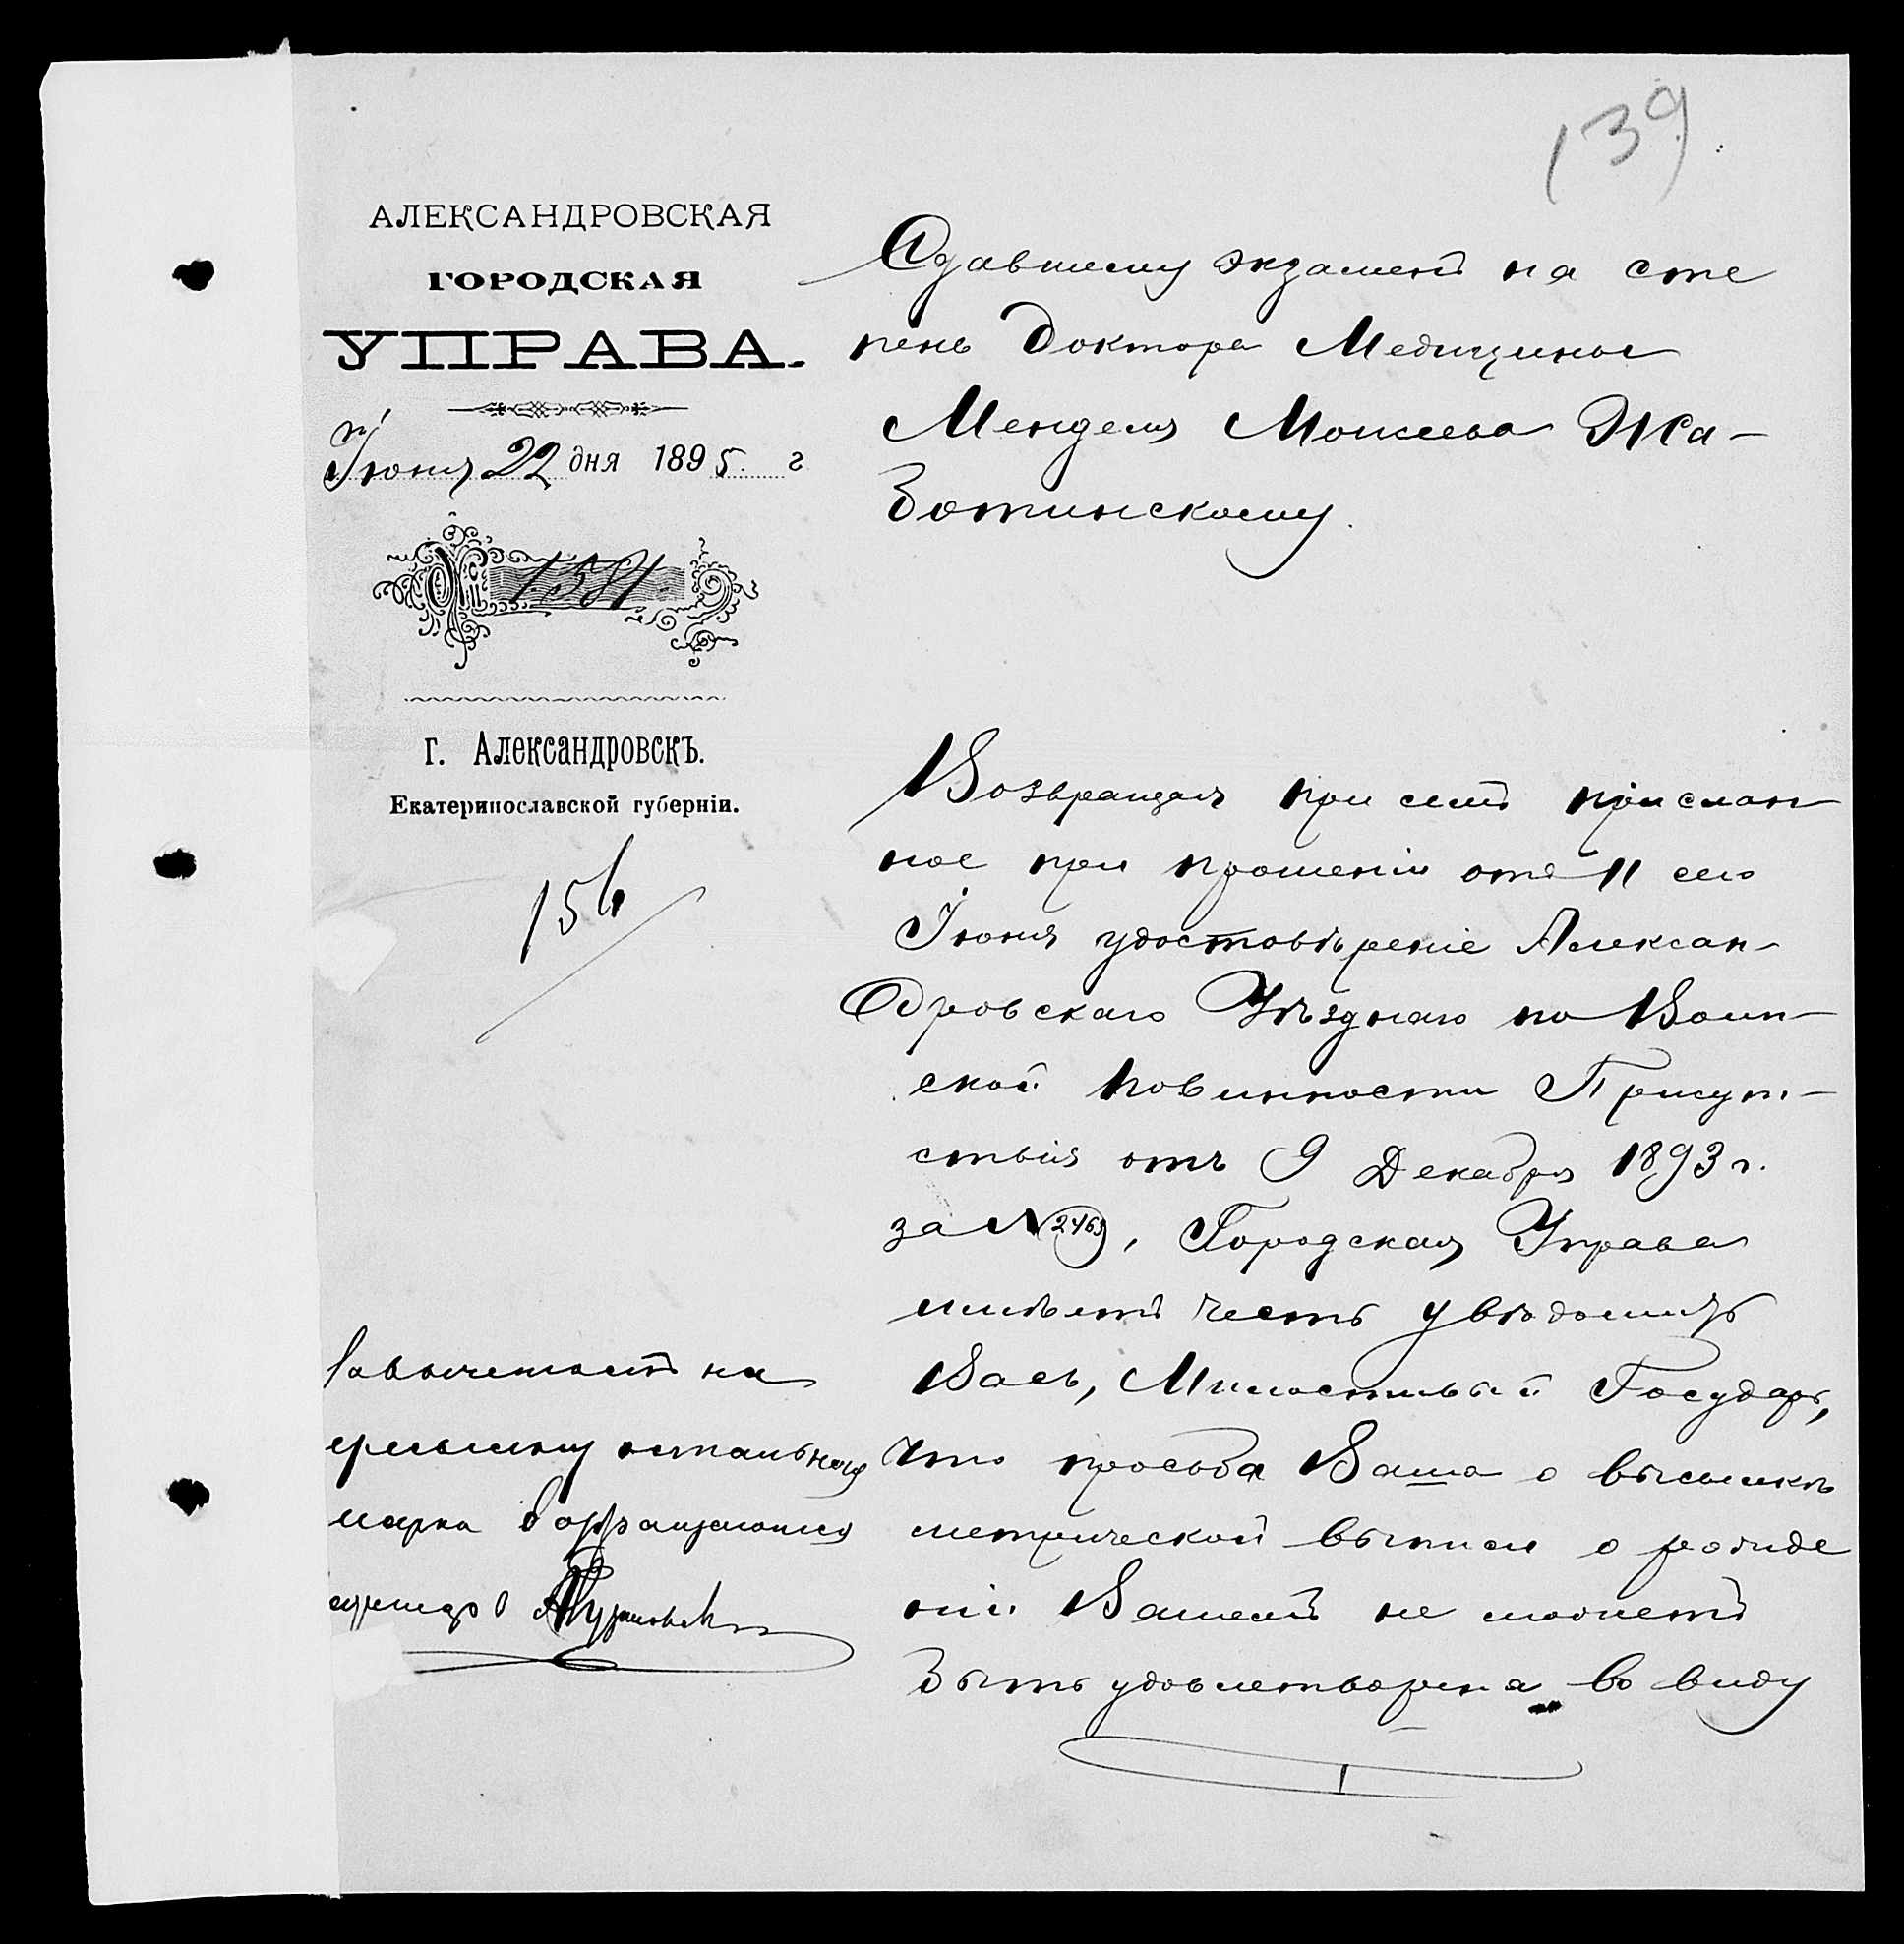 139
АЛЕКСАНДРОВСКАЯ
ГОРОДСКАЯ
УПРАВА.
Іюня 22 дня 1895 г
№ 1581
г. Александровскъ.
Екатеринославской губерніи.
156
Сдавшему экзаменъ на сте
пень Доктора Медицины
Менделю Моисееву Жа-
ботинскому.
Возвращая при семъ прислан
ное при прошеніи отъ 11 сего
Іюня удостовѣреніе Алексан-
дровскаго Уѣзднаго по Воин-
ской повинности Присут-
ствія отъ 9 Декабря 1893 г.
за № 2469, Городская Управа
имѣетъ честь увѣдомить
Васъ, Милостивый Государь,
что просьба Ваша о высылкѣ
метрической выписи о рожде
ніи Вашемъ не можетъ
быть удовлетворена въ виду
за вычетомъ на
пересылку остальныя
марки возвращаются